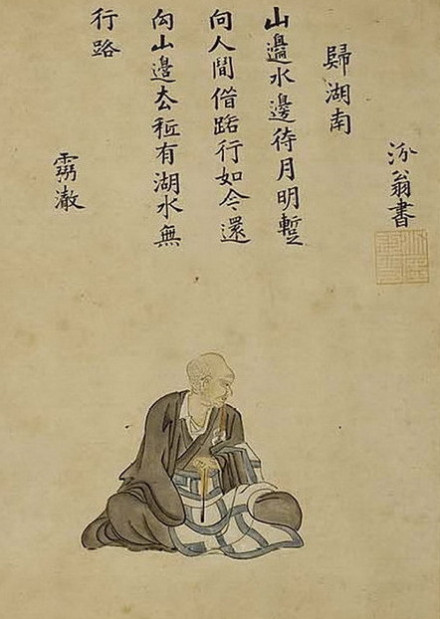 汾翁書
歸湖南
山邊水邊待月明暫
向人間借路行如今還
向山邊去秪有湖水無
行路
靈澈